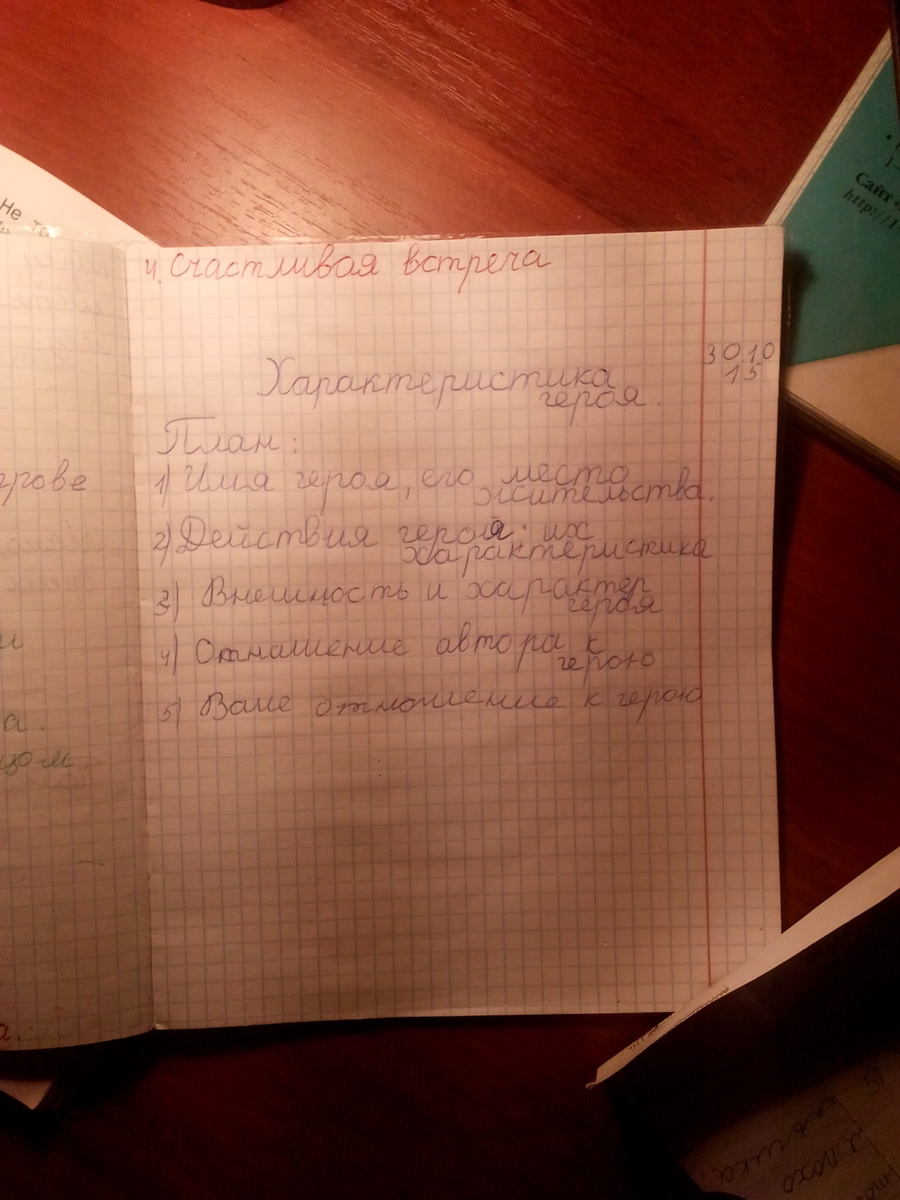 Не то
Сайт
http://1
4. Счастливая встреча
30 10
15
Характеристика
героя.
План:
1) Имя героя, его место
жительства.
2) Действия героя: их
характеристика
3) Внешность и характер
героя
4) Отнашение автора к
герою
5) Ваше отношение к герою
грове
и
а.
цом.
а.
плохо